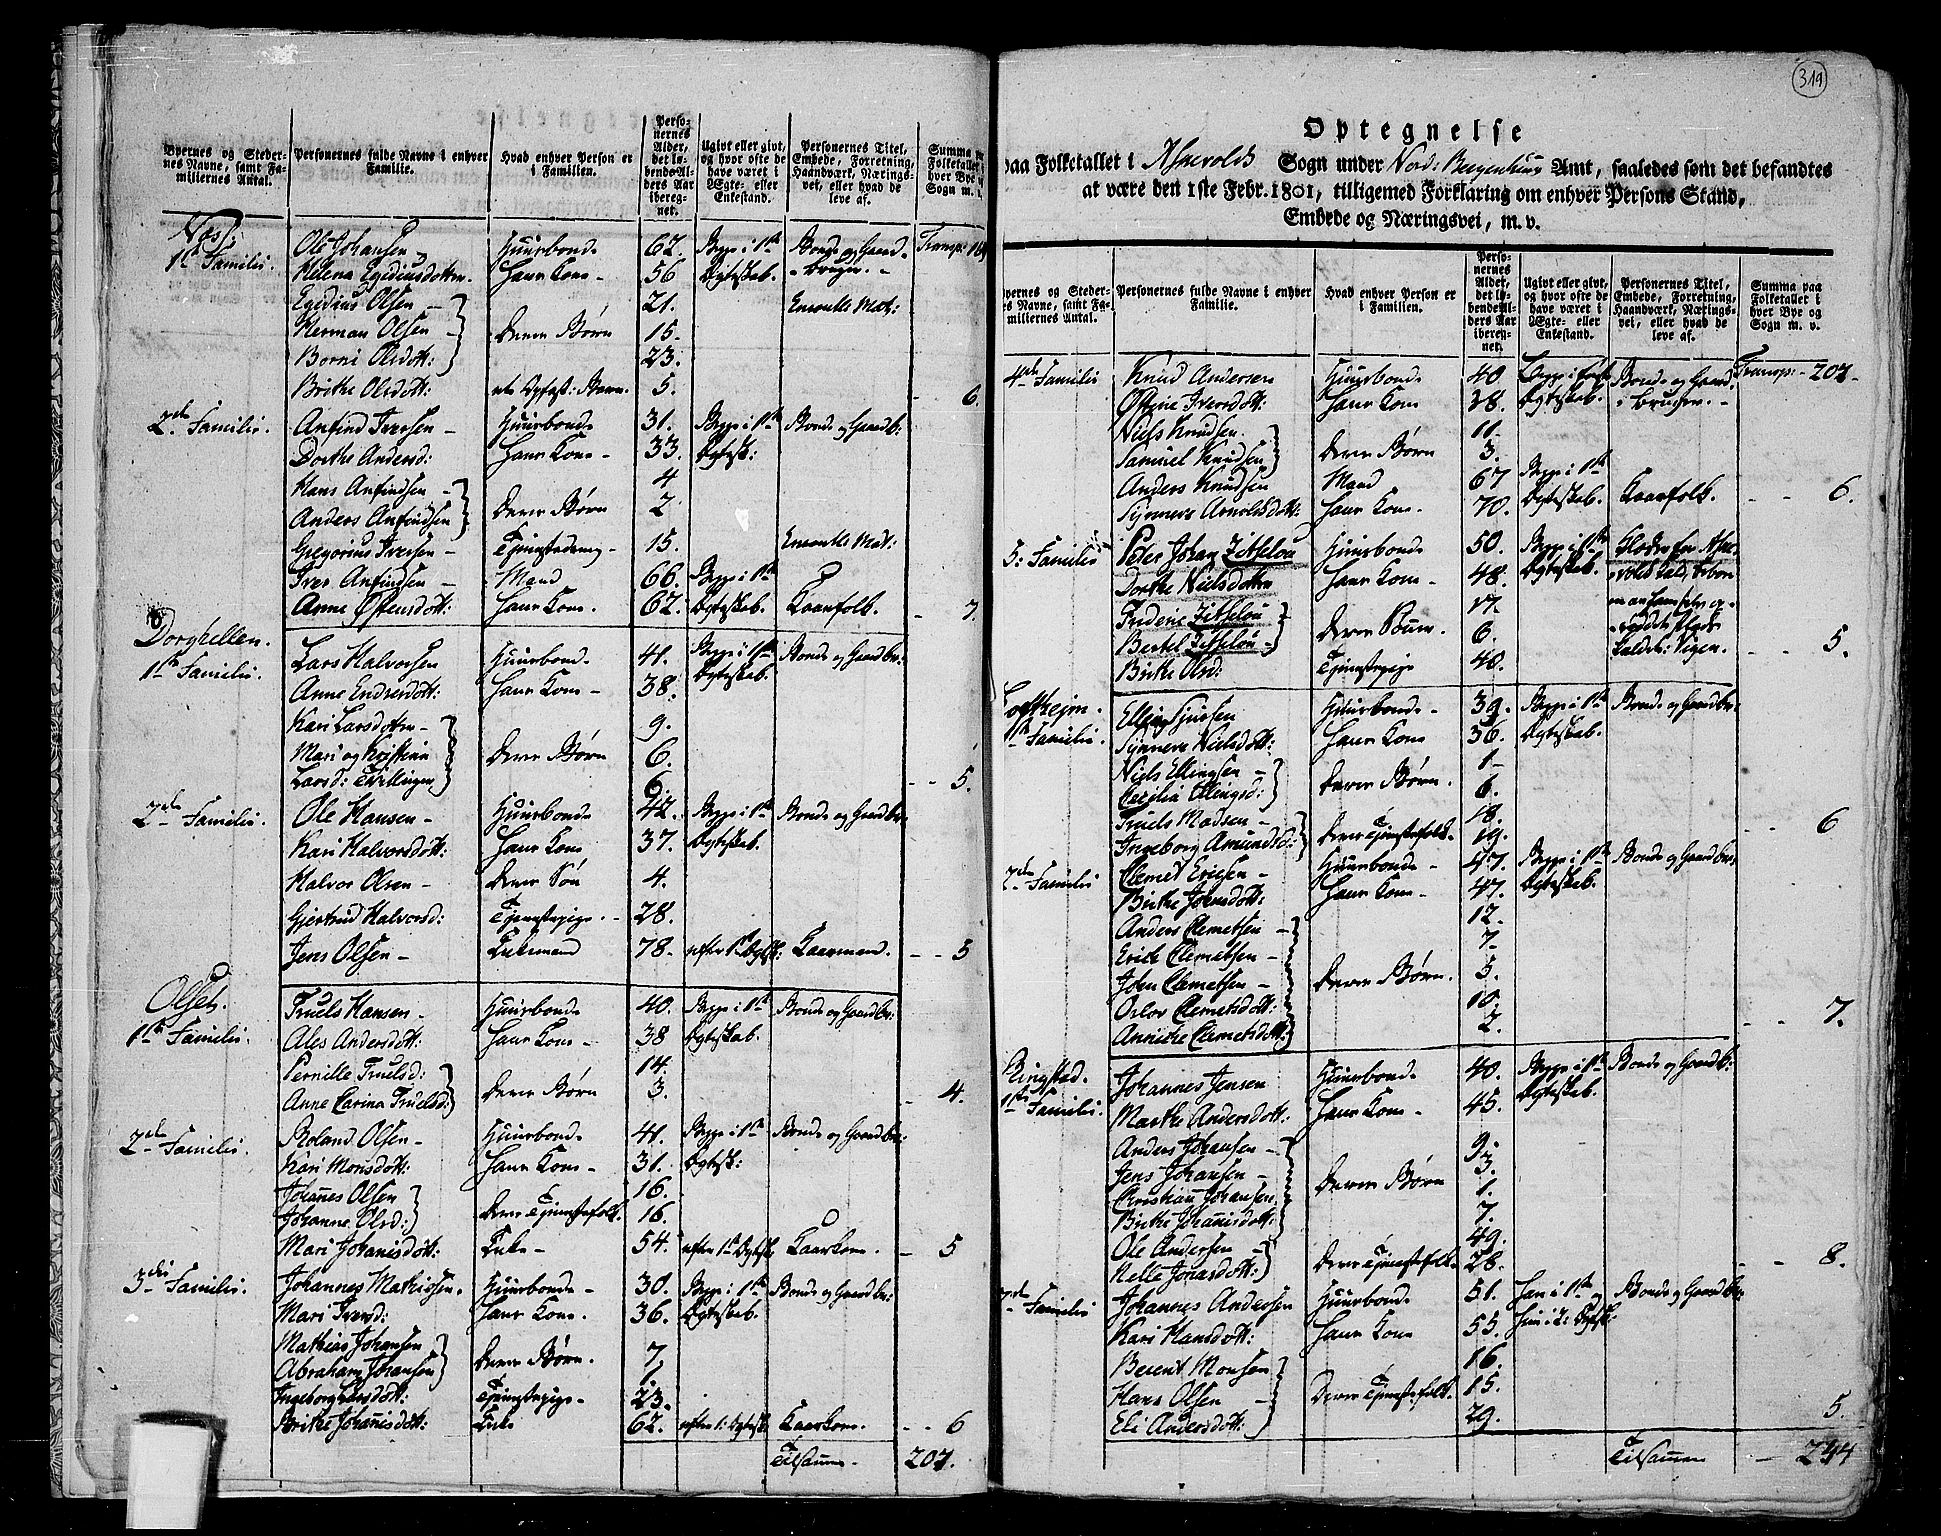 319
Byernes og Steder-
nes Navne, samt Fa-
miliernes Antal.
Personernes fulde Navne i enhver
Familie.
Hvad enhver Person er
i Familien.
Perso-
nernes
Alder,
det lø-
bende Al-
ders Aar
ibereg-
net.
Ugivt eller givt,
og hvor ofte de
have været i
Ægte- eller
Enkestand.
Personernes Titel,
Embede, Forretning,
Haandværk, Nærings-
vei, eller hvad de
leve af.
Summa
Folketallet
hver Bye
Sogn m.
Næss.
1ste Familie. Ole Johansen Huusbonde 62. Begge i 1ste Bonde og Gaard- Transp:
Helena Egidiusdotter Hans Kone 56 Egteskab. bruger.
Egidius Olsen 21. Enroulle Mat:
Herman Olsen Deres Børn 15.
Borni Olsdott: 23.
Brithe Olsdott: 5. 6.
2de Familie. Anfind Iversen Huusbonde 31. Begge i 1ste Bonde og Gaardb:
Dorthe Andersd: Hans Kone 33. Egtesk:
Hans Anfindsen 4
Anders Anfindsen Deres Børn 2
Gregorius Iversen Tjenestedreng 15. Enroulle Mat:
Iver Anfindsen Mand 66. Begge i 1ste
Anne Østensdott: Hans Kone. 62. Egteskab. Kaarfolk. 7.
Dorghellen.
1ste Familie. Lars Halvorsen Huusbonde 41. Begge i 1ste Bonde og Gaardbr:
Anne Endresdott: Hans Kone 38. Egteskab.
Kari Larsdotter 9.
Mari og Kristina Deres Børn 6.
Larsd: Tvillinger 6. 5.
2de Familie. Ole Hansen Huusbonde 42. Begge i 1ste Bonde og Gaardbr:
Kari Halvorsdott: Hans Kone 37. Egteskab.
Halvor Olsen Deres Søn 4.
Gjertrud Halvorsd: Tjenestepige 28.
Jens Olsen Enkemand 78. efter 1ste Egtsk: Kaarmand. 5
Olset.
1ste Familie. Truels Hansen Huusbonde 40. Begge i 1ste Bonde og Gaardbr:
Ales Andersdott: Hans Kone 38 Egteskab.
Pernille Truelsd: 14.
Anne Carina Truelsd: Deres Børn 3. 4.
2de Familie. Roland Olsen Huusbonde 41. Begge i 1ste Bonde og Gaardbr:
Kari Monsdott: Hans Kone 31. Egtesk:
Johanes Olsen 16.
Johanne Olsd: Deres Tjenestefolk. 16.
Mari Johanisdott: Enke 54. efter 1ste Egtesk. Kaarkone. 5
3die Familie. Johannes Mathissen. Huusbonde 30. Begge i 1ste Bonde og Gaardbr:
Mari Iversd: Hans Kone. 36. Egteskab.
Mathias Johansen 7.
Abraham Johansen Deres Børn. 1.
Ingeborg Larsdott: Tjenestepige 23.
Brithe Johanisdott: Enke 62. efter 1: Egtesk. Kaarkone. 6
Tilsamen 207.
Optegnelse
paa Folketallet i Askevolds Sogn under Nord: Bergenhuus Amt, saaledes som det befandtes
at være den 1ste Febr. 1801, tilligemed Forklaring om enhver Persons Stand,
Embede og Næringsvei, m. v.
Byernes og Steder-
nes Navne, samt Fa-
miliernes Antal.
Personernes fulde Navne i enhver
Familie.
Hvad enhver Person er
i Familien.
Perso-
nernes
Alder,
det lø-
bende Al-
ders Aar
ibereg-
net.
Ugivt eller givt,
og hvor ofte de
have været i
Ægte- eller
Enkestand.
Personernes Titel,
Embede, Forretning,
Haandværk, Nærings-
vei, eller hvad de
leve af.
Summa paa
Folketallet i
hver Bye og
Sogn m. v.
4de Familie Knud Andersen Huusbonde 40 Begge i første Bonde og Gaard- Transp: 207
Østine Iversdott: Hans Kone 38. Egteskab. bruger.
Niels Knudsen 11.
Samuel Knudsen Deres Børn 3.
Anders Knudsen Mand 67 Begge i 1ste
Synneve Arnoldsdott: Hans Kone 70. Egteskab. Kaarfolk. 6.
5: Familie Peter Johan Zitzelou Huusbonde 50. Begge i 1ste
Dorthe Nielsdotter Hans Kone 48. Egteskab.
Frideric Zitzelou 17.
Bertel Zitzelou Deres 6.
Birthe Olsd: Tjenestepige 40. 5.
1ste Familie. Elling Sjursen Huusbonde 39. Begge i 1ste Bonde og Gaardbr:
Synneve Nielsdott: Hans Kone 36. Egteskab.
Niels Ellingsen 1
Cecilia Ellingsd: Deres Børn. 6.
Truels Madsen 18.
Ingeborg Amundsd: Deres Tjenestefolk. 19. 6
2de Familie Clemet Ericsen Huusbonde 47. Begge i 1ste Bonde og Gaardbr:
Birthe Johnsdott: Hans Kone 47. Egteskab.
Anders Clemetsen 12.
Erick Clemetsen 7
John Clemetsen Deres Børn. 5.
Oslov Clemetsdott: 10.
Annicke Clemetsdott: 2. 7.
Ringstad.
1ste Familie. Johannes Jensen Huusbonde 40. Begge i 1ste Bonde og Gaardb:
Marthe Andersdott: Hans Kone 45. Egteskab.
Anders Johansen 9.
Jens Johansen Deres Børn 3.
Christian Johansen 1.
Birthe Johanisdott: 7.
Ole Andersen 49.
Nelle Jonasdott: Deres Tjenestefolk 28. 8.
2de Familie Johannes Andersen Huusbonde 51. Han i 1ste og Bonde og Gaardbr:
Kari Hansdott: Hans Kone 55. hun i 2: Egtesk:
Berent Monsen 16.
Hans Olsen Deres Tjenestefolk. 15.
Eli Andersdott: 29. 5.
Tilsamen 244